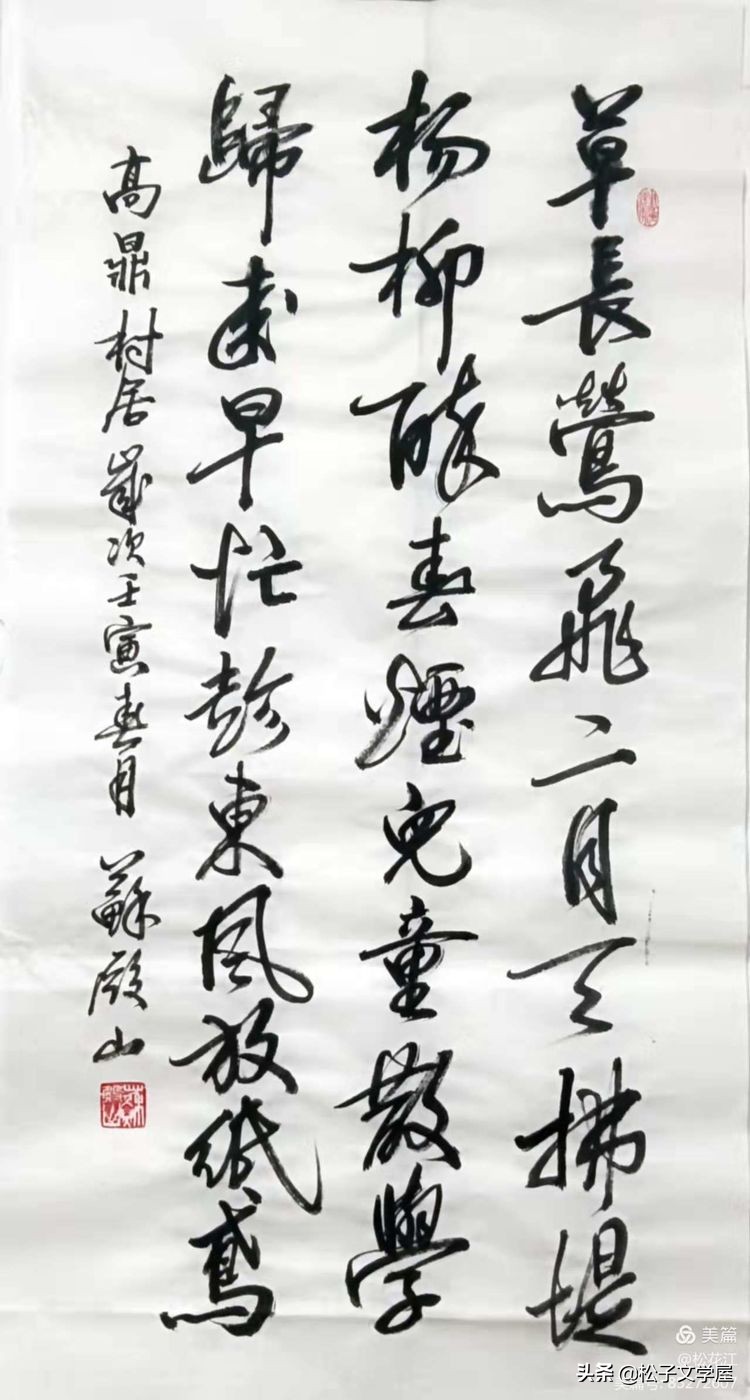 草長鶯飛二月天拂堤
杨柳醉春煙兒童散學
歸来早忙趁東風放紙鳶
高鼎村居歲次壬寅春月 蘇殿山
美篇
@松花江
头条 @松子文学屋